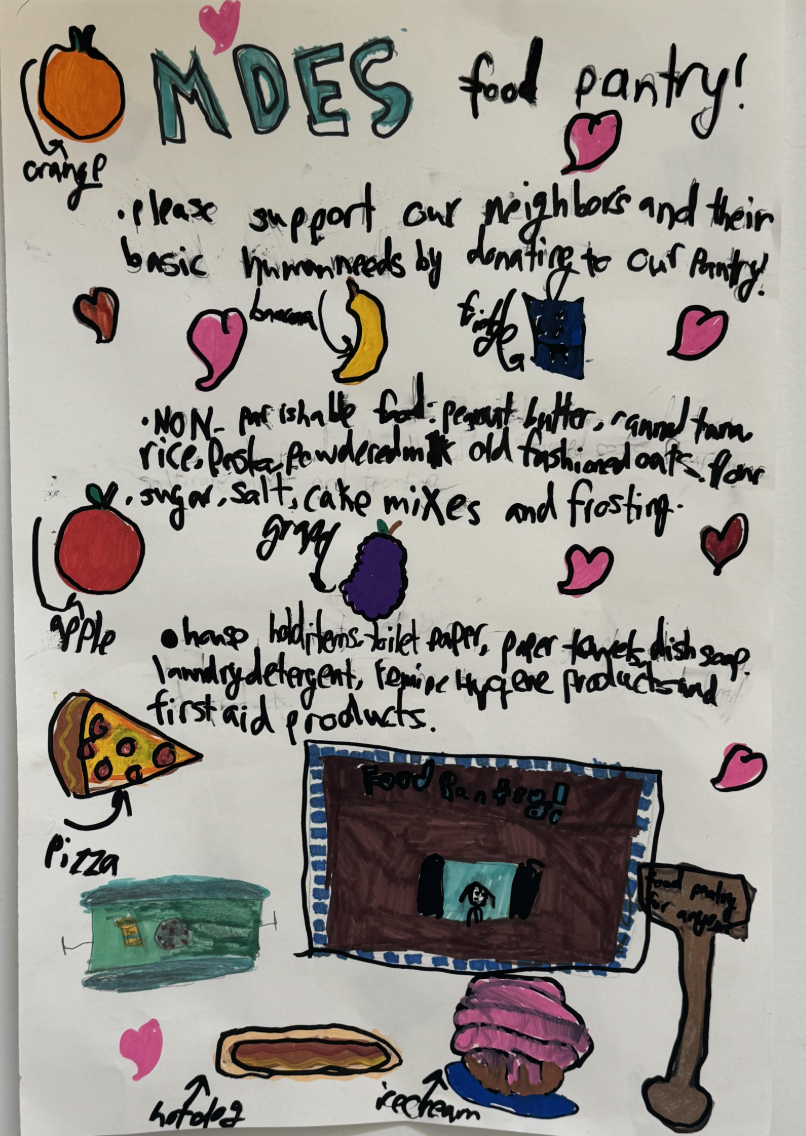 MDES food pantry!
orange
.please support our neighbors and their
basic human needs by donating to our Pantry!
banana
fridge
.NON-parishable food: peanut butter, canned tuna,
rice, Pasta, powdered milk old fashioned oats, flour
, sugar, salt, cake mixes and frosting.
grape
apple
• house hold items, toilet paper, paper towels, dish soap.
laundry detergent, Hygiene products and
first aid products.
Food Pantry!
Pizza
food pantry
for anyone
hotdog
icecream